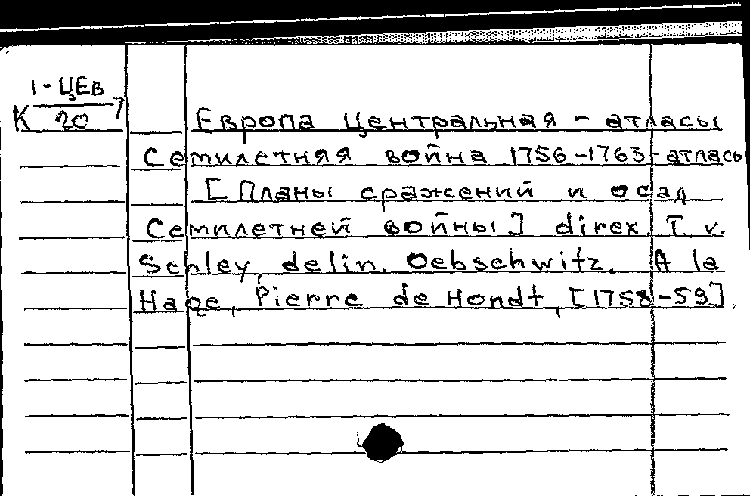 1-ЦЕВ
К 20 7
Европа Центральная - атласы
Семилетняя война 1756-1763 - атласы
[Планы сражений и осад
Семилетней войны] direx. T. v.
Schley, delin. Oebschwitz. A la
Haqe, Pierre de Hondt, [1758-59].